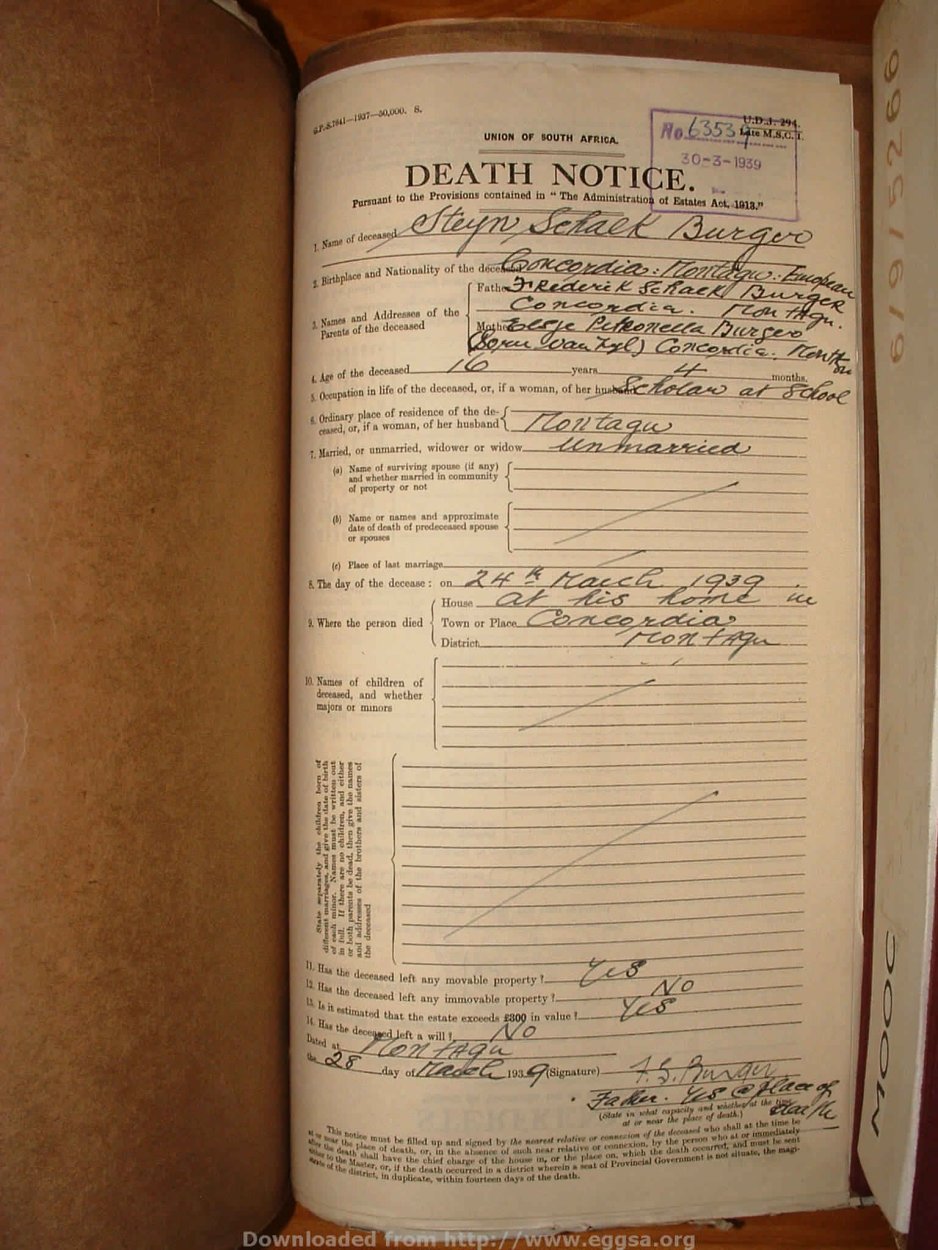 G.P.-S.7641—1937—50,000. S.
U.D.J. 294.
Late M.S.C.I.
No. 63539
30-3-1939
UNION OF SOUTH AFRICA.
DEATH NOTICE.
Pursuant to the Provisions contained in “The Administration of Estates Act, 1913.”
1. Name of deceased Steyn Schalk Burger
2. Birthplace and Nationality of the deceased Concordia: Montagu: European
3. Names and Addresses of the Parents of the deceased
Father Frederik Schalk Burger
Concordia. Montagu.
Mother Petronella Burger
(Born van Zyl) Concordia. Montagu
4. Age of the deceased 16 years 4 months.
5. Occupation in life of the deceased, or, if a woman, of her husband Scholar at School
6. Ordinary place of residence of the de-
ceased, or, if a woman, of her husband Montagu
7. Married, or unmarried, widower or widow unmarried
(a) Name of surviving spouse (if any)
and whether married in community
of property or not
(b) Name or names and approximate
date of death of predeceased spouse
or spouses
(c) Place of last marriage
8. The day of the decease: on 24th March 1939.
9. Where the person died
House at his home in
Town or Place Concordia
District Montagu
10. Names of children of
deceased, and whether
majors or minors
State separately the children born of
different marriages, and give the date of birth
of each minor. Names must be written out
in full. If there are no children, and either
or both parents be dead, then give the names
and addresses of the brothers and sisters of
the deceased
11. Has the deceased left any movable property? Yes
12. Has the deceased left any immovable property? No
13. Is it estimated that the estate exceeds £300 in value? Yes
14. Has the deceased left a will? No
Dated at Montagu
the 28 day of March 1939 (Signature) F. S. Burger
Father. Yes @ place of
death
(State in what capacity and whether at the time
at or near the place of death.)
This notice must be filled up and signed by the nearest relative or connexion of the deceased who shall at the time be
at or near the place of death, or, in the absence of such near relative or connexion, by the person who at or immediately
after the death shall have the chief charge of the house in, or the place on, which the death occurred, and must be sent
either to the Master, or, if the death occurred in a district wherein a seat of Provincial Government is not situate, the magi-
strate of the district, in duplicate, within fourteen days of the death.
MOOC 6/9/5162 99
Downloaded from http://www.eggsa.org